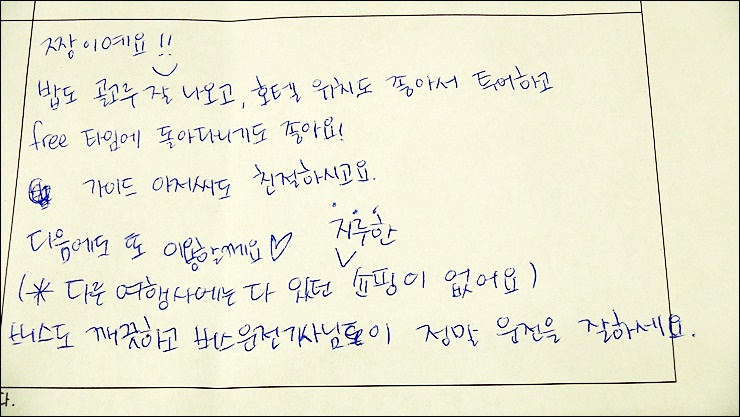 짱이예요!!
밥도 골고루 잘 나오고, 호텔 위치도 좋아서 투어하고
free 타임에 돌아다니기도 좋아요!
가이드 아저씨도 친절하시고요.
다음에도 또 이용할께요♡ 지루한
(* 다른 여행사에는 다 있던 쇼핑이 없어요)
버스도 깨끗하고 버스운전기사님이 정말 운전을 잘하세요.
다.